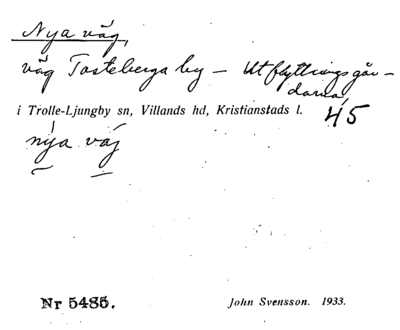 Nya väg,
väg Tosteberga by – Utflyttningsgår-
darna,
i Trolle-Ljungby sn, Villands hd, Kristianstads l. 45
nýa väj
Nr 5485. John Svensson. 1933.